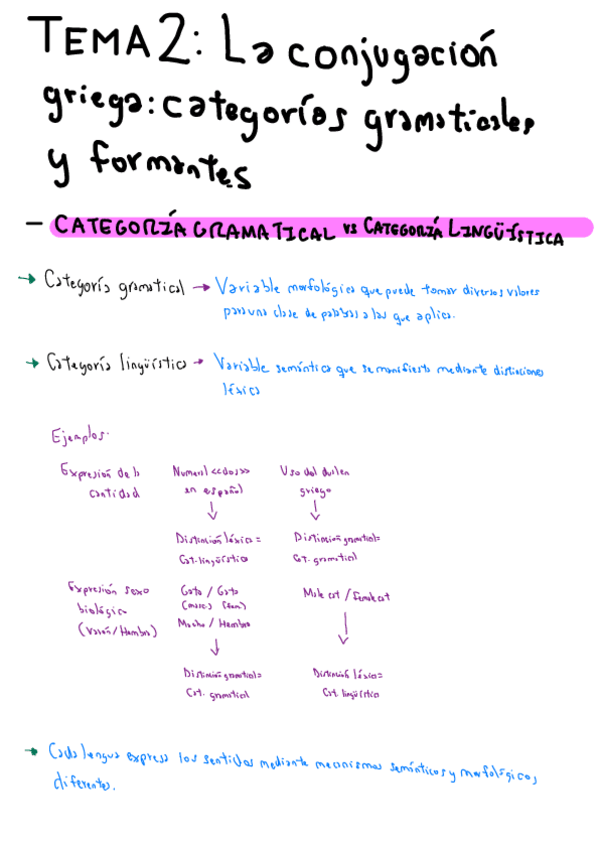 TEMA 2: La conjugación
griega: categorías gramaticales
y formantes
– CATEGORÍA GRAMATICAL vs CATEGORÍA LINGÜÍSTICA
→ Categoría gramatical → Variable morfológica que puede tomar diversos valores
para una clase de palabras a las que aplica.
→ Categoría lingüística → Variable semántica que se manifiesta mediante distinciones
léxica
Ejemplos:
Expresión de la cantidad
Numeral <<dos>> en español
Uso del dual en griego
↓ ↓
Distinción léxica = Cat. lingüística
Distinción gramatical = Cat. gramatical
Expresión sexo biológico (Varón/Hembra)
Gato / Gata (masc) (fem) Macho / Hembra
Male cat / Female cat
↓ ↓
Distinción gramatical = Cat. gramatical
Distinción léxica = Cat. lingüística
→ Cada lengua expresa los sentidos mediante mecanismos semánticos y morfológicos
diferentes.